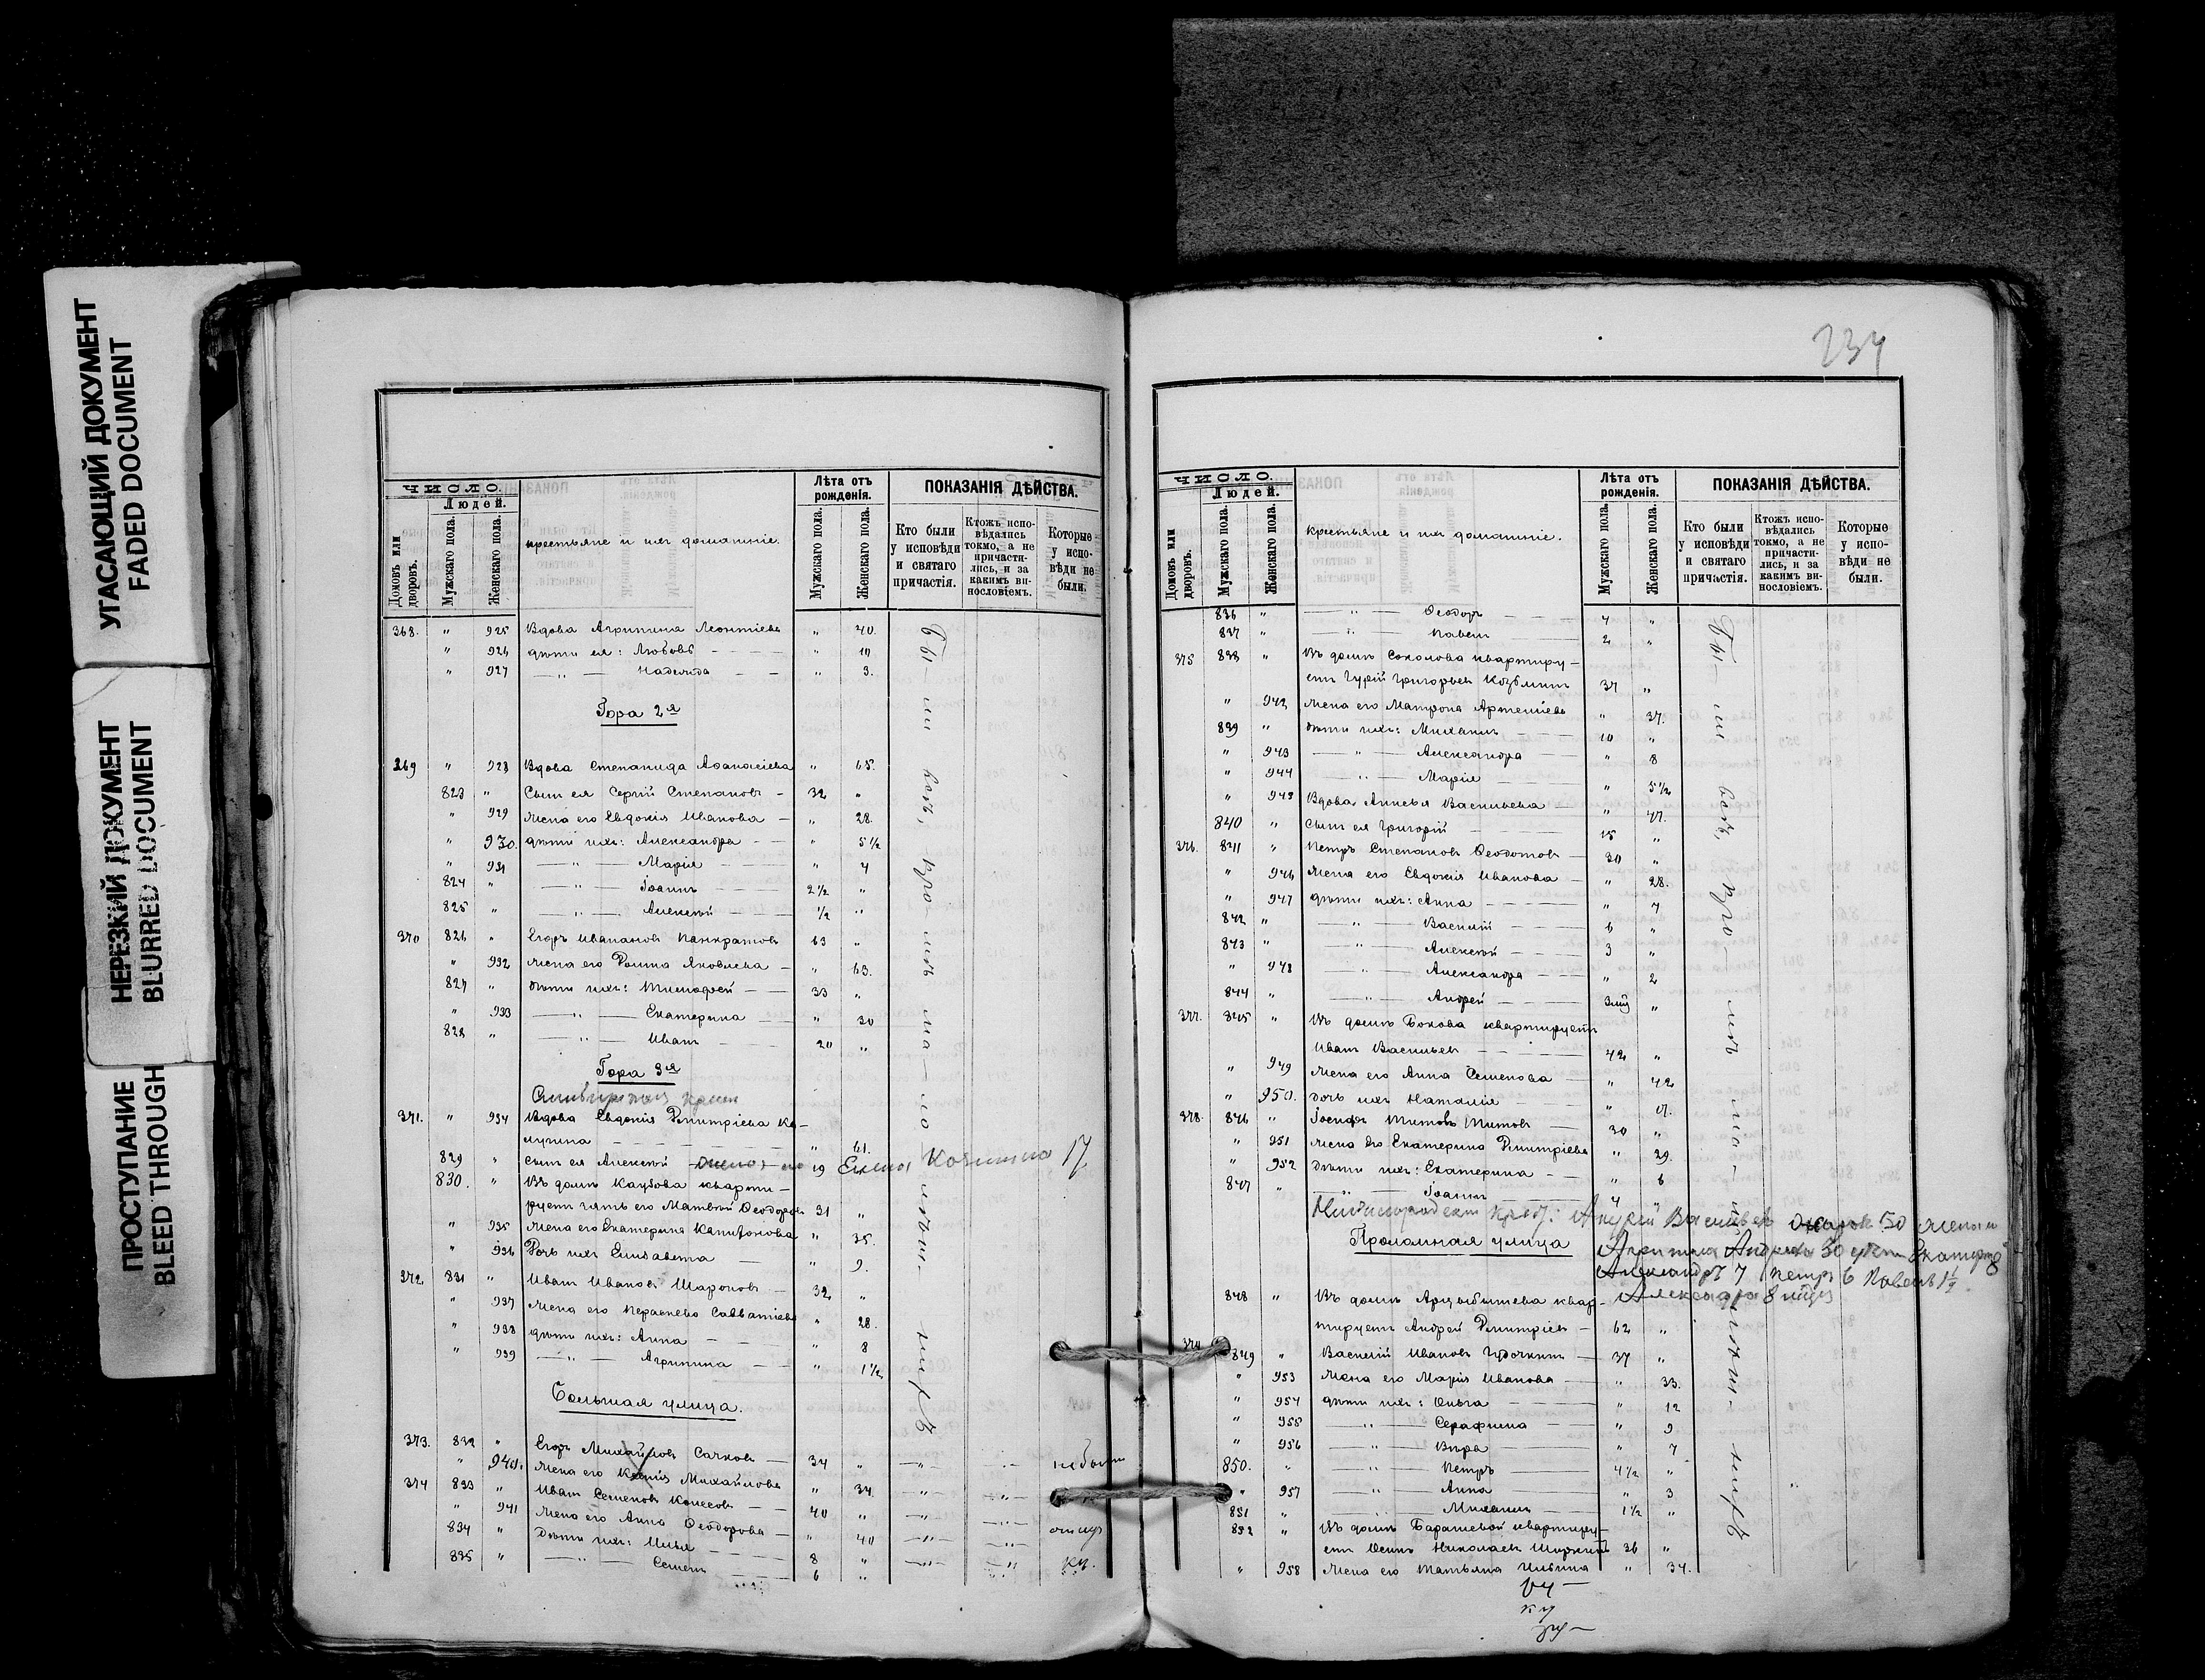 УГАСАЮЩИЙ ДОКУМЕНТ
FADED DOCUMENT
НЕРЕЗКИЙ ДОКУМЕНТ
BLURRED DOCUMENT
ПРОСТУПАНИЕ
BLEED THROUGH
ЧИСЛО.
Людей.
Домовъ или дворовъ.
Мужскаго пола.
Женскаго пола.
крестьяне и ихъ домашніе.
Лѣта отъ рожденія.
Мужскаго пола.
Женскаго пола.
ПОКАЗАНІЯ ДѢЙСТВА.
Кто были у исповѣди и святаго причастія.
Ктожъ исповѣдались токмо, а не причастились, и за какимъ винословіемъ.
Которые у исповѣди не были.
368. " 925 Вдова Агрипина Леонтіева " 40.
" 926 дѣти ея: Любовь " 10
" 927 —"— Надежда " 3.
Гора 2я
369 " 928 Вдова Степанида Аѳанасіева " 65.
823 " Сынъ ея Сергій Степановъ 32 "
" 929 Жена его Евдокія Иванова " 28.
" 930. дѣти ихъ: Александра " 5½
" 931 —"— Марія " 4
824 " —"— Іоаннъ 2½ "
825 " —"— Алексѣй ½ "
370 826 " Егоръ Ивановъ Панкратовъ 63 "
" 932 Жена его Домна Яковлева " 63.
827 " Дѣти ихъ: Тимоѳей 33 "
" 933 —"— Екатерина " 30
828 " —"— Иванъ 20 "
Гора 3я
371. " 934 Вдова Евдокія Димитріева
" 61.
829 " сынъ ея Алексѣй 19 Елена 17
830. " Въ домѣ кварти-
руетъ зять его Матвѣй Ѳеодоровъ 31 "
" 935 Жена его Екатерина Капитонова " 35.
" 936 Дочь ихъ Елисавета " 9.
372 831 " Иванъ Ивановъ Шароновъ 32 "
" 937 Жена его Савватіева " 28.
" 938 дѣти ихъ: Анна " 8
" 939 —"— Агрипина " 1½
Большая улица.
373. 832 " Егоръ Михайловъ Сачковъ 34 " не были
" 940. Жена его Ксенія Михайлова " 34.
374 833 " Иванъ Семеновъ 40 "
" 941 Жена его Анна Ѳеодорова " 40
834 " Дѣти ихъ: Илья 8 "
835 " —"— Семенъ 6 "
Бы-ли всѣ, кро-мѣ ма-лолѣт-нихъ
234
ЧИСЛО.
Людей.
Домовъ или дворовъ.
Мужскаго пола.
Женскаго пола.
крестьяне и ихъ домашніе.
Лѣта отъ рожденія.
Мужскаго пола.
Женскаго пола.
ПОКАЗАНІЯ ДѢЙСТВА.
Кто были у исповѣди и святаго причастія.
Ктожъ исповѣдались токмо, а не причастились, и за какимъ винословіемъ.
Которые у исповѣди не были.
836 " —"— Ѳеодоръ 4 "
837 " —"— Павелъ 2 "
375 838 " Въ домѣ Соколова квартиру-
етъ Гурій Григорьевъ 37 "
" 942 Жена его Матрона Артеміева " 37.
839 " Дѣти ихъ: Михаилъ 10 "
" 943 —"— Александра " 8
" 944 —"— Марія " 5½
" 945 Вдова Анисья Васильева " 47.
840 " Сынъ ея Григорій 15 "
376. 841 " Петръ Степановъ Ѳедотовъ 30 "
" 946 Жена его Евдокія Иванова " 28.
" 947 дѣти ихъ: Анна " 7
842 " —"— Василій 6 "
843 " —"— Алексѣй 3 "
" 948 —"— Александра " 2
844 " —"— Андрей "
377. 845 " Въ домѣ Бокова квартируетъ
Иванъ Васильевъ 42 "
" 949 Жена его Анна Семенова " 42
" 950. Дочь ихъ Наталія "
378. 846 " Іосифъ Титовъ Титовъ 30 "
" 951 Жена его Екатерина Димитріева " 29.
" 952 Дѣти ихъ: Екатерина " 6
847 " —"— Іоаннъ 4 "
Нижегородск крест: Андрей Васильевъ 50 жена
Проломная улица
Андреева 30 дѣти Екатер 8
Александръ 7 Петръ 6 Павелъ 1½
Александра 8 мѣс
848 " Въ домѣ Арцыбышева квар-
тируетъ Андрей Димитріевъ 62 "
849 " Василій Ивановъ 37 "
" 953 Жена его Марія Иванова " 33.
" 954 дѣти ихъ: Ольга " 12
" 955 —"— Серафима " 9
" 956 —"— Вѣра " 7
850. " —"— Петръ 4½ "
" 957 —"— Анна " 3
851 " —"— Михаилъ 1½ "
852 " Въ домѣ Барашевой квартиру-
етъ Осипъ Николаевъ 36 "
" 958 Жена его Татьяна Ильина " 34.
Бы-ли всѣ, кро-мѣ ма-лолѣт-нихъ